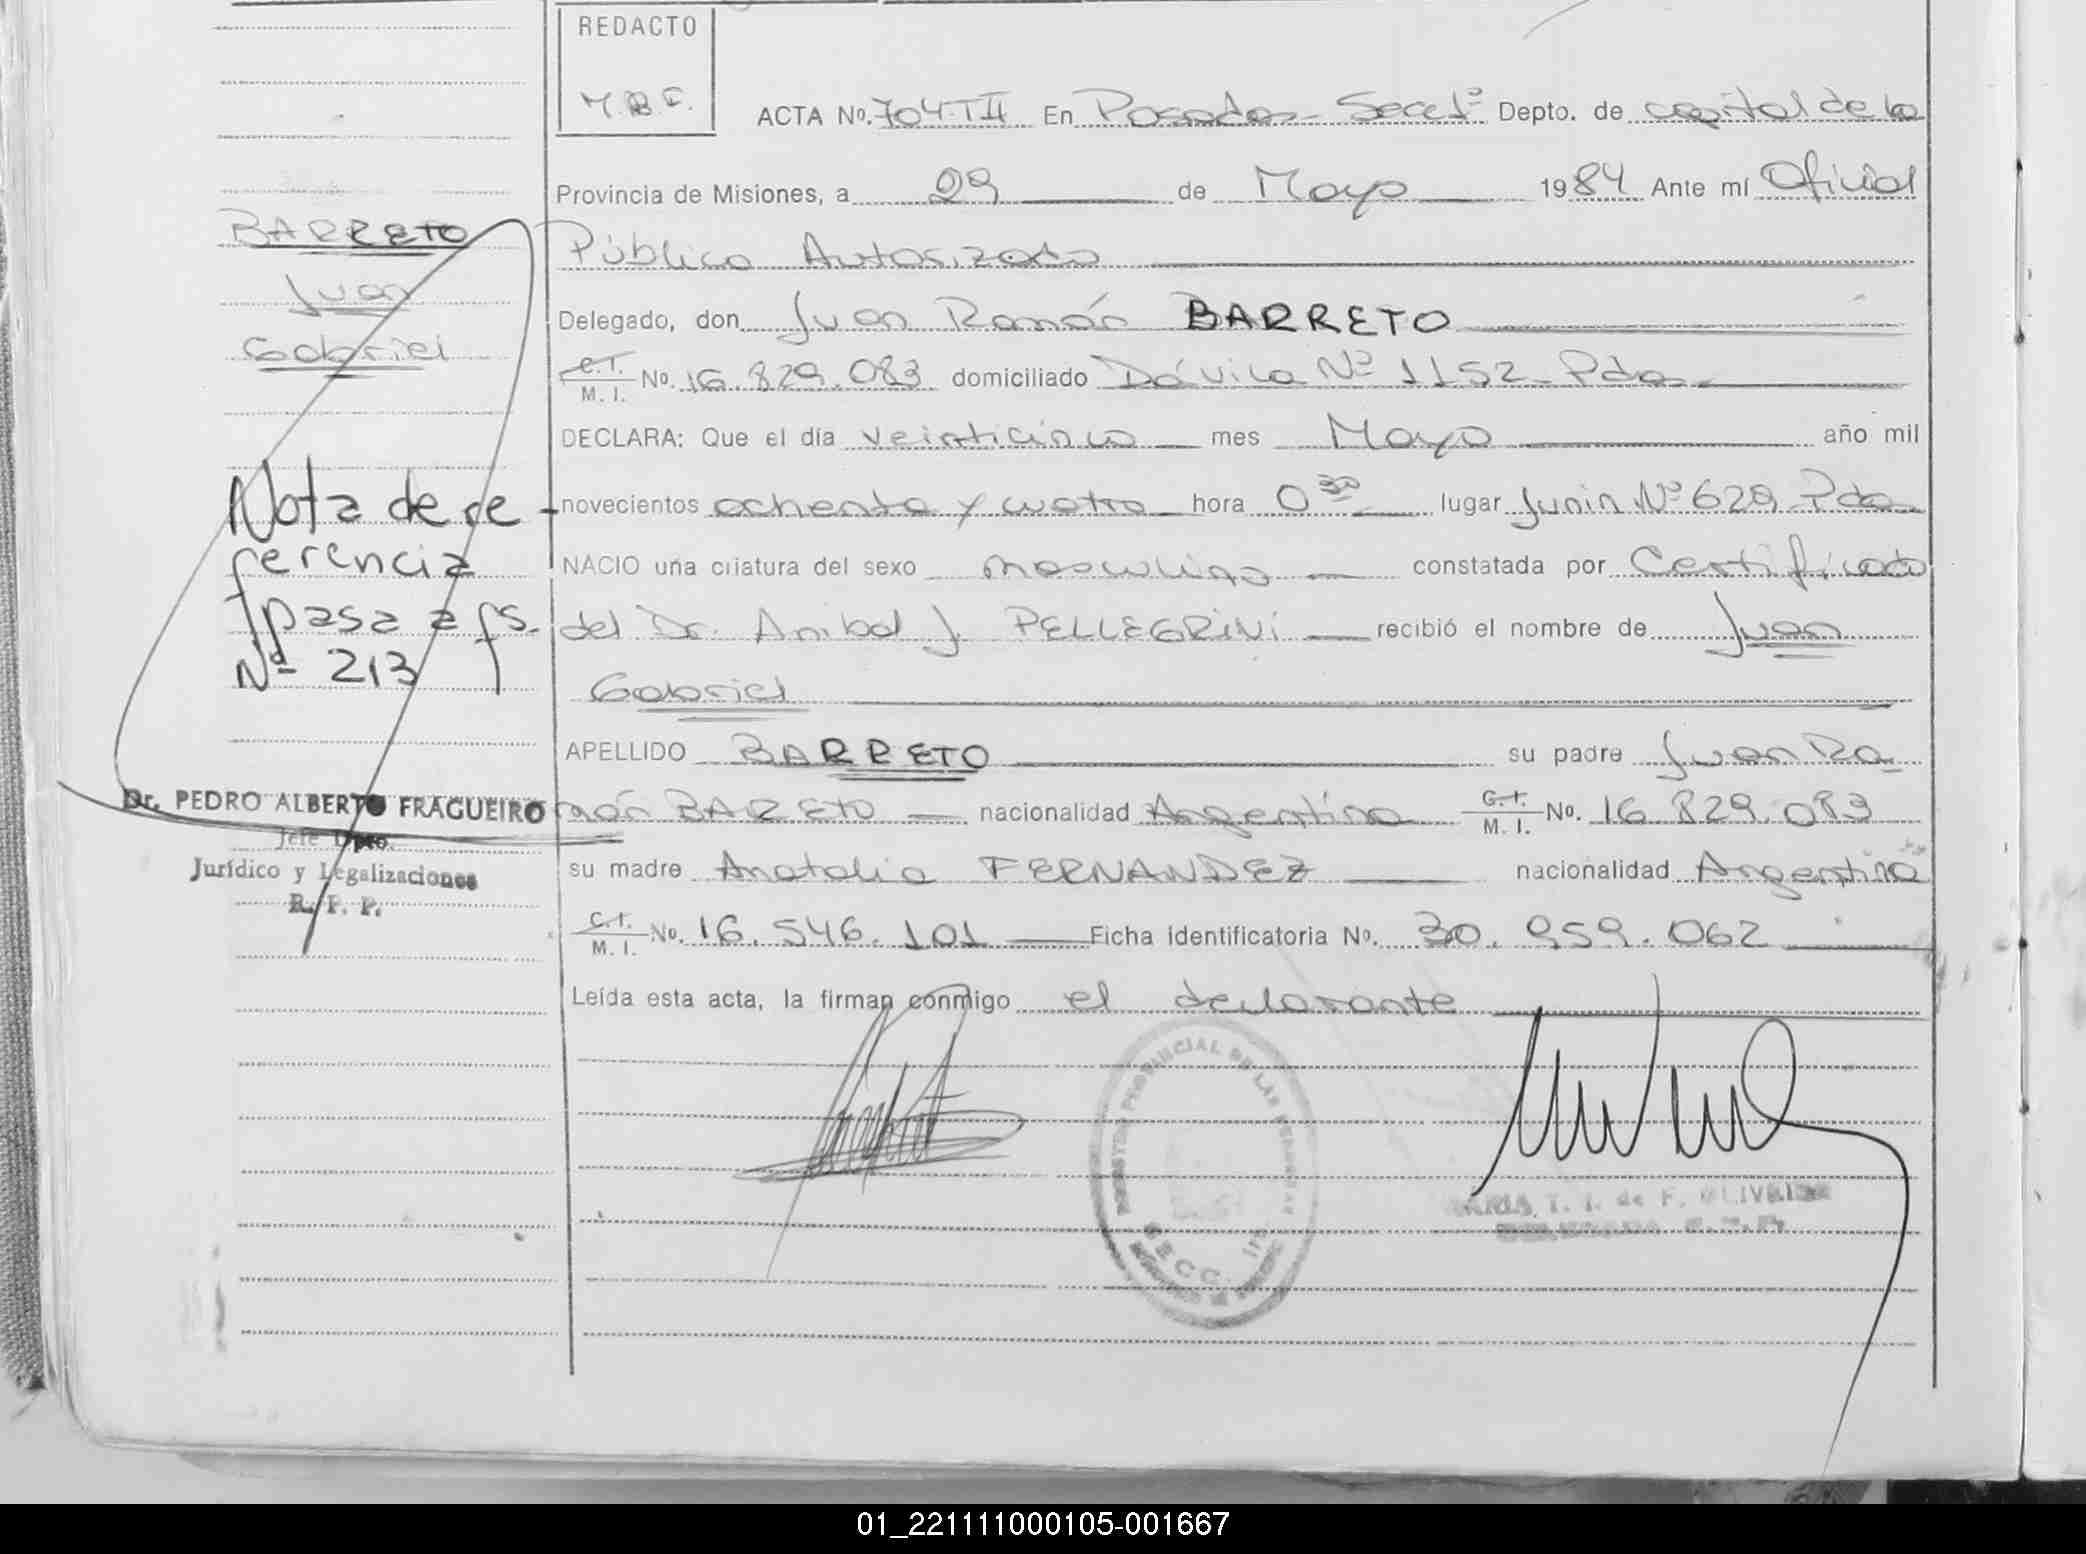 REDACTO
M.B.F.
ACTA Nº. 704 TII En Posadas Secc 1ª Depto. de capital de la
Provincia de Misiones, a 29 de Mayo 1984 Ante mí Oficial
Público Autorizado
Delegado, don Juan Ramón BARRETO
C.I. / M. I. Nº. 16.829.083 domiciliado Dávila Nº 1152 Pdas
DECLARA: Que el día veinticinco mes Mayo año mil
novecientos ochenta y cuatro hora 0 30 lugar Junin Nº 629 Pdas
NACIO una criatura del sexo masculino constatada por Certificado
del Dr. Anibal J. PELLEGRINI recibió el nombre de Juan
Gabriel
APELLIDO BARRETO su padre Juan Ra
món BARRETO nacionalidad Argentina C.I. / M. I. Nº. 16.829.083
su madre Anatalia FERNANDEZ nacionalidad Argentina
C.I. / M. I. Nº. 16.546.101 Ficha identificatoria Nº. 30.959.062
Leída esta acta, la firman conmigo el declarante
BARRETO
Juan
Gabriel
Nota de re-
ferencia
pasa a fs.
Nº 213
Dr. PEDRO ALBERTO FRAGUEIRO
Jefe Dpto.
Jurídico y Legalizaciones
R. P. P.
PROVINCIAL DE LAS PERSONAS
SECC.
MARIA T. I. de F. OLIVEIRA
01_221111000105-001667